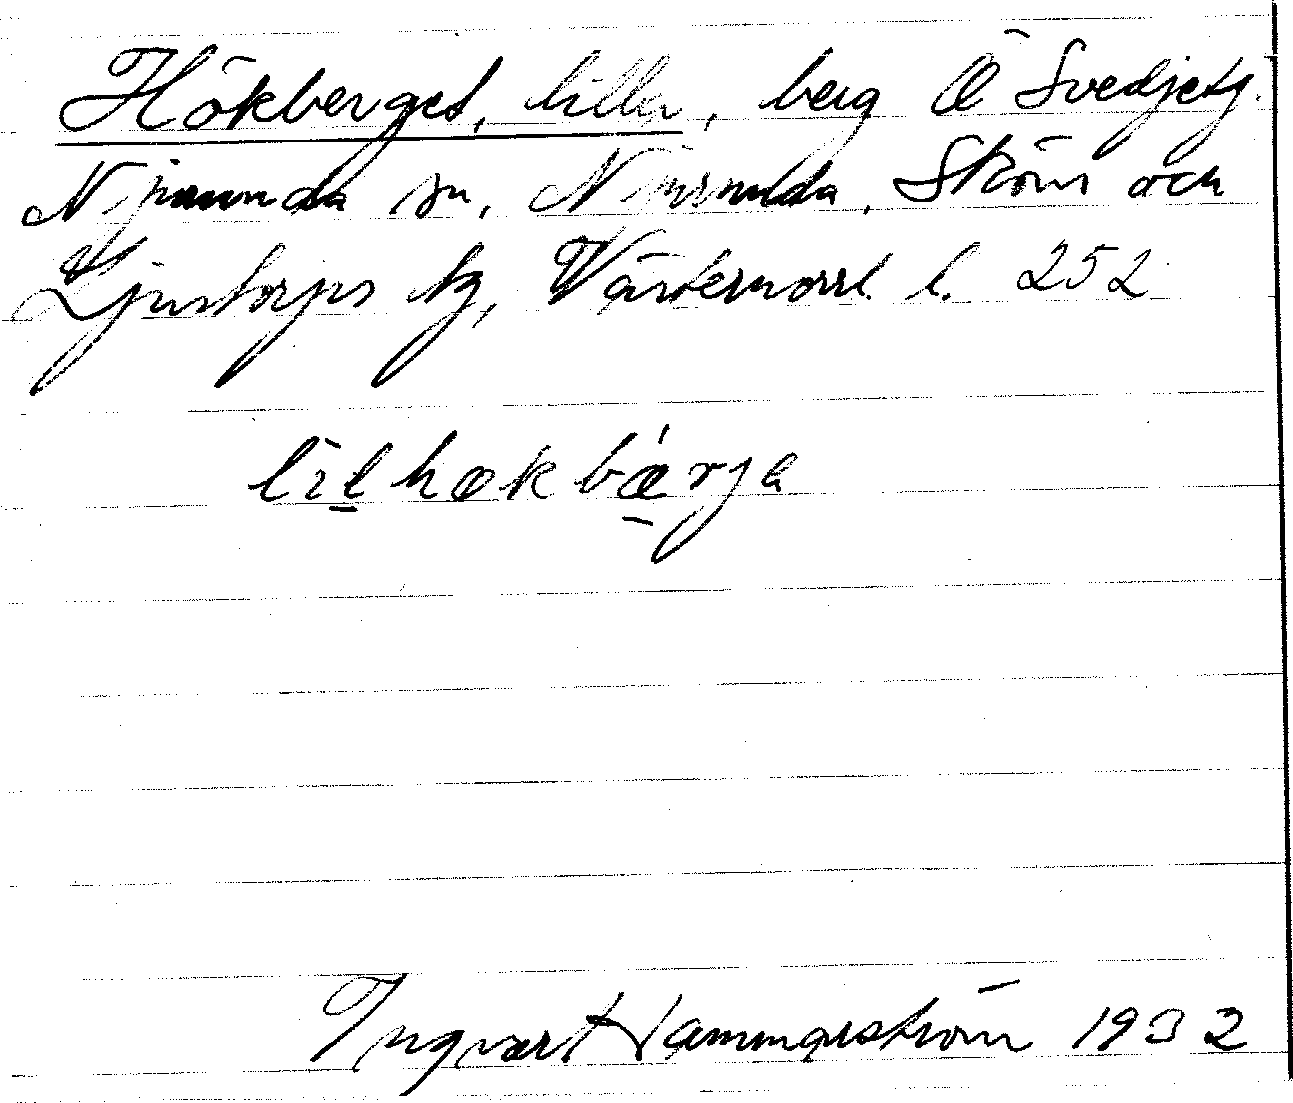 Hökberget, lilla, berg Ö Svedjetj.
Njurunda sn, Njurunda, Sköns och
Ljustorps tg, Västernorrl. l. 252
lilhøkbærja
Ingvart Hammarström 1932